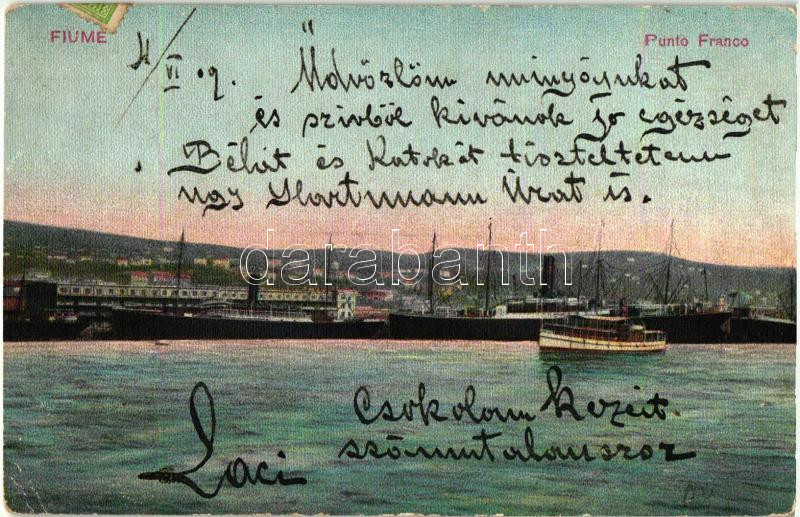 FIUME
Punto Franco
4/VI 09. Üdvözlöm minyájukat
és szivböl kivánok jo egézséget
Bélát és Katokát tiszteltetem
ugy Hartmann Urat is.
darabanth
Csokolom kezeit
számtalanszor
Laci